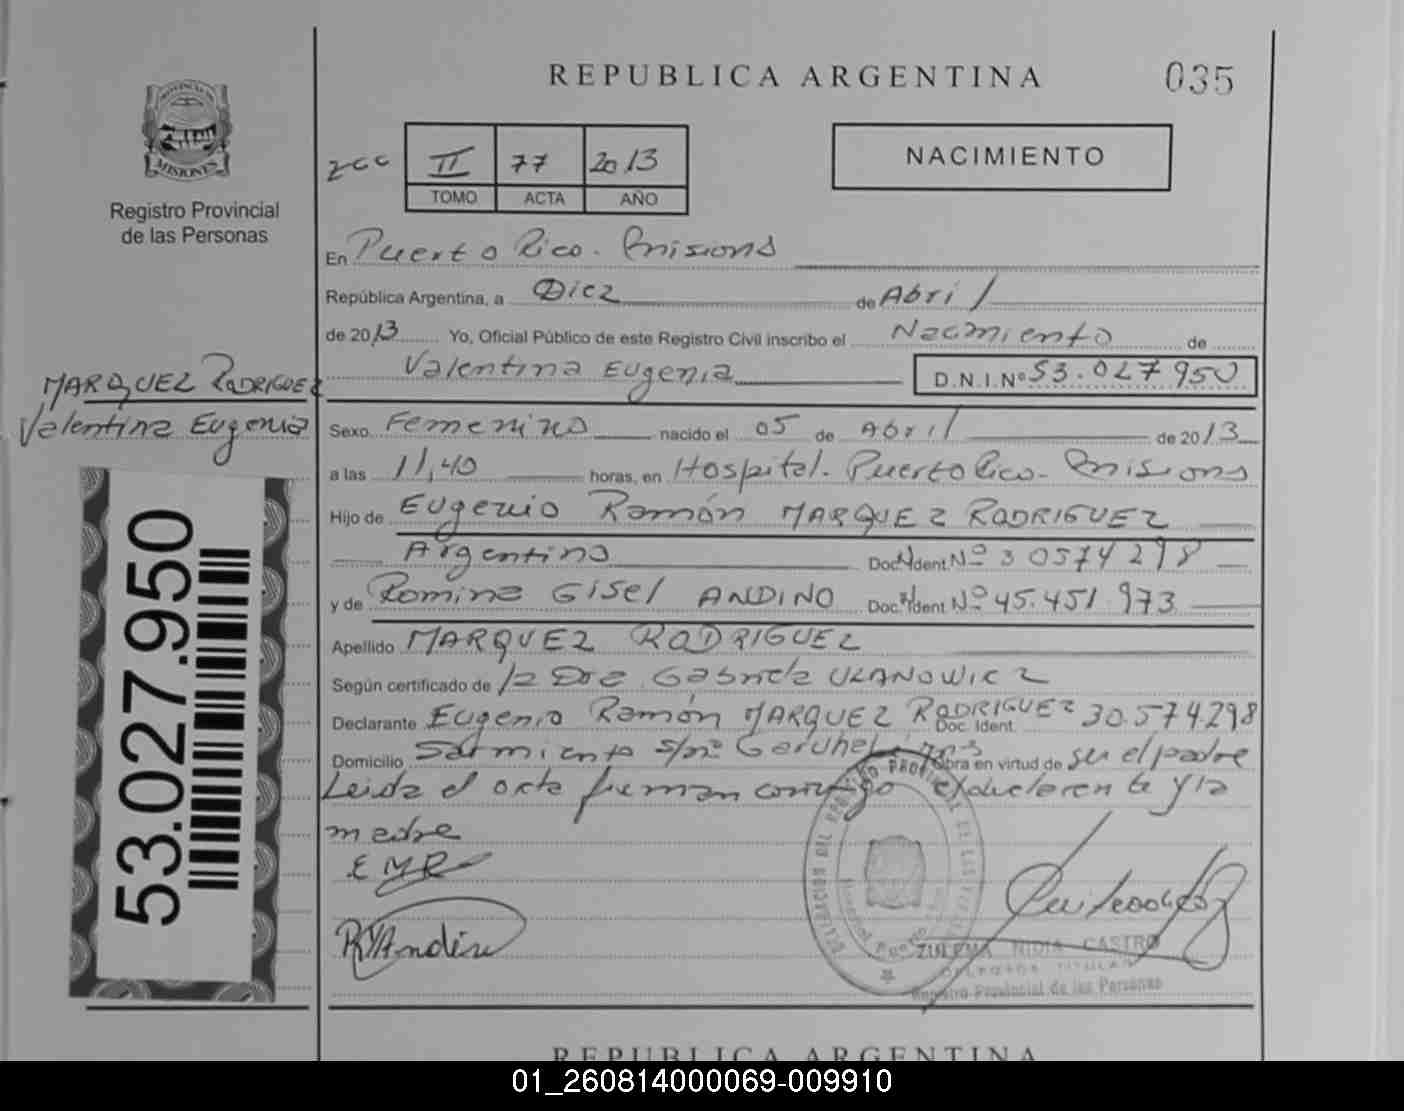 REPUBLICA ARGENTINA
035
PROVINCIA DE
MISIONES
Registro Provincial
de las Personas
II 77 2013
TOMO ACTA AÑO
NACIMIENTO
En Puerto Rico - Misiones
República Argentina, a Diez de Abril
de 2013 Yo, Oficial Público de este Registro Civil inscribo el Nacimiento de
Valentina Eugenia D.N.I.Nº 53.027.950
MARQUEZ RODRIGUEZ
Valentina Eugenia
Sexo Femenino nacido el 05 de Abril de 2013
a las 11,40 horas, en Hospital. Puerto Rico - Misiones
Hijo de Eugenio Ramón MARQUEZ RODRIGUEZ
Argentino Doc. Ident. Nº 30574298
y de Romina Gisel ANDINO Doc. Ident. Nº 45.451.973
Apellido MARQUEZ RODRIGUEZ
Según certificado de la Dra. Gabriela ULANOWICZ
Declarante Eugenio Ramón MARQUEZ RODRIGUEZ Doc. Ident. 30.574.298
Domicilio Sarmiento s/nº Garuhapé Obra en virtud de ser el padre
Leida el acta firman conmigo el declarante y la
madre
EMR
R Andino
53.027.950
ZULEMA NIDIA CASTRO
DELEGADA TITULAR
Registro Provincial de las Personas
REPUBLICA ARGENTINA
01_260814000069-009910